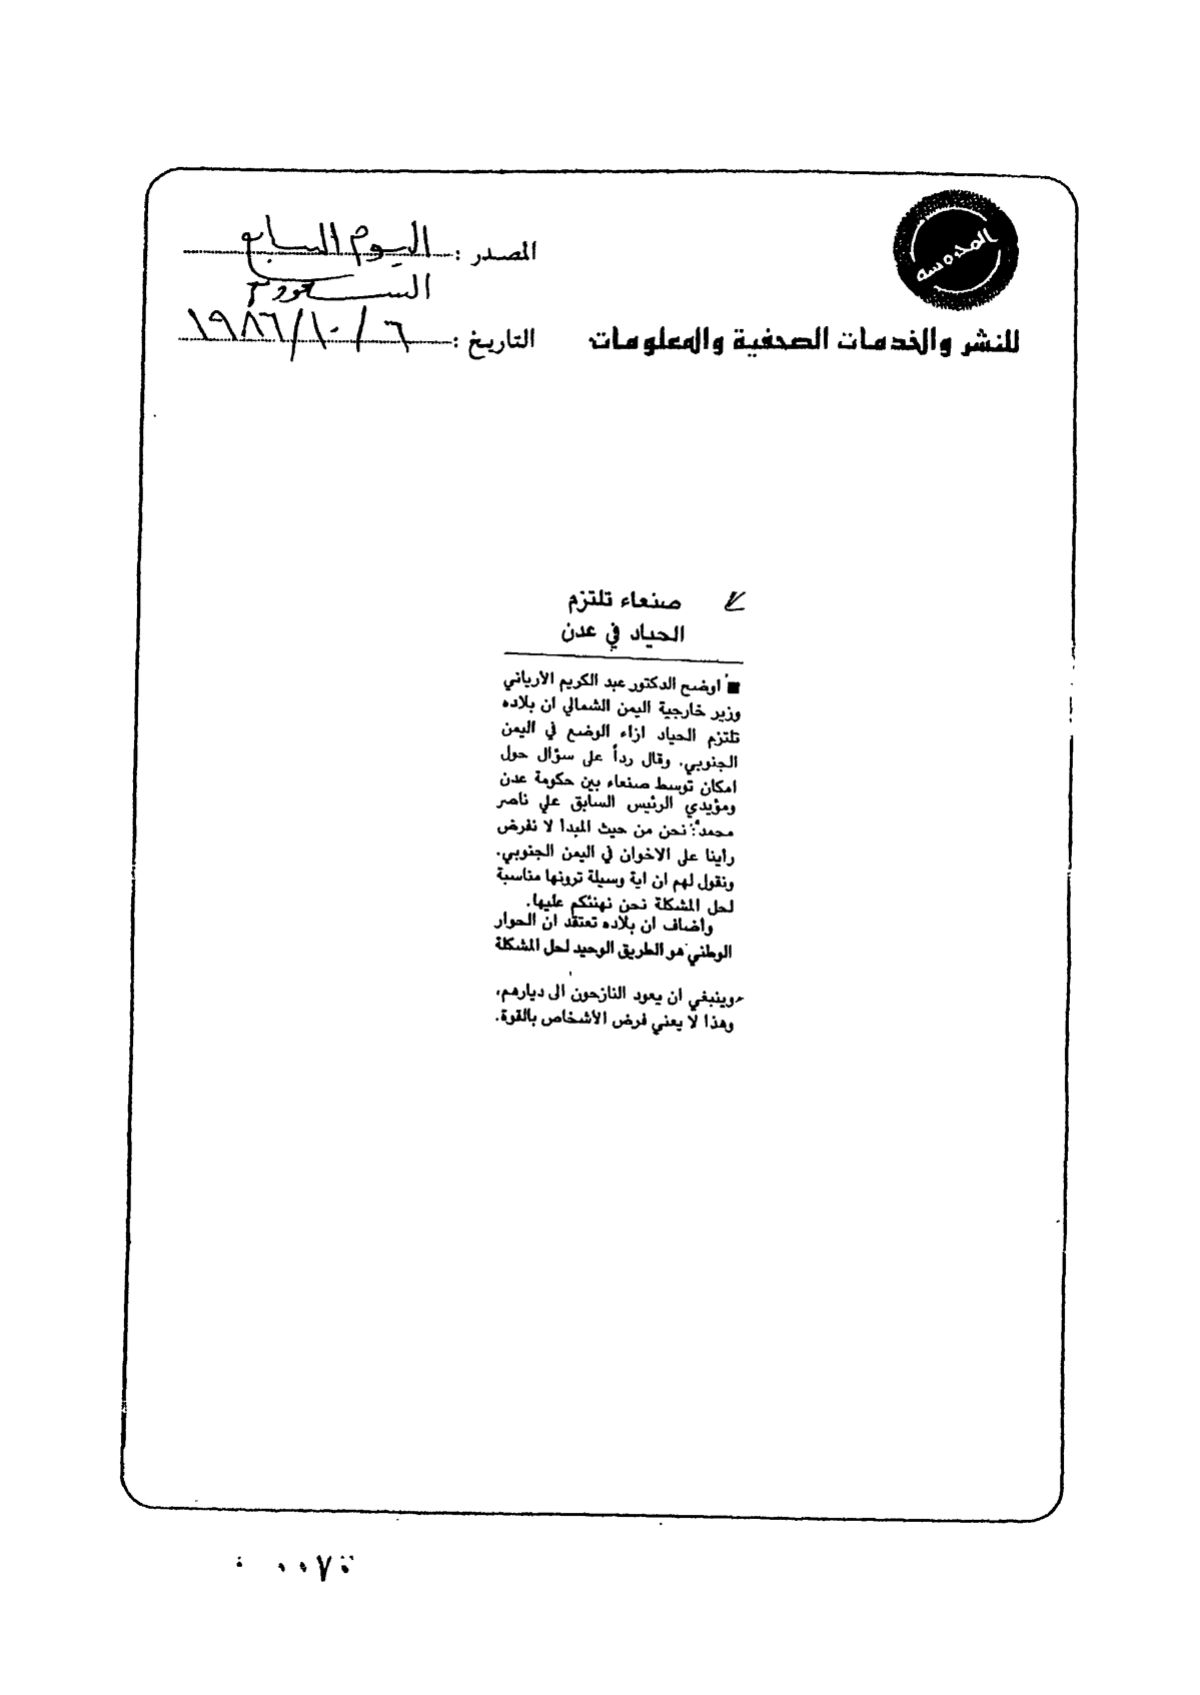 المحروسه
للنشر والخدمات الصحفية والمعلومات
المصدر : اليوم السابع
التاريخ : ٦ / ١٠ / ١٩٨٦
صنعاء تلتزم
الحياد في عدن
■ اوضح الدكتور عبد الكريم الأرياني
وزير خارجية اليمن الشمالي ان بلاده
تلتزم الحياد ازاء الوضع في اليمن
الجنوبي. وقال رداً على سؤال حول
امكان توسط صنعاء بين حكومة عدن
ومؤيدي الرئيس السابق علي ناصر
محمد: نحن من حيث المبدأ لا نفرض
رأينا على الاخوان في اليمن الجنوبي.
ونقول لهم ان اية وسيلة ترونها مناسبة
لحل المشكلة نحن نهنئكم عليها.
وأضاف ان بلاده تعتقد ان الحوار
الوطني هو الطريق الوحيد لحل المشكلة
وينبغي ان يعود النازحون الى ديارهم،
وهذا لا يعني فرض الأشخاص بالقوة.